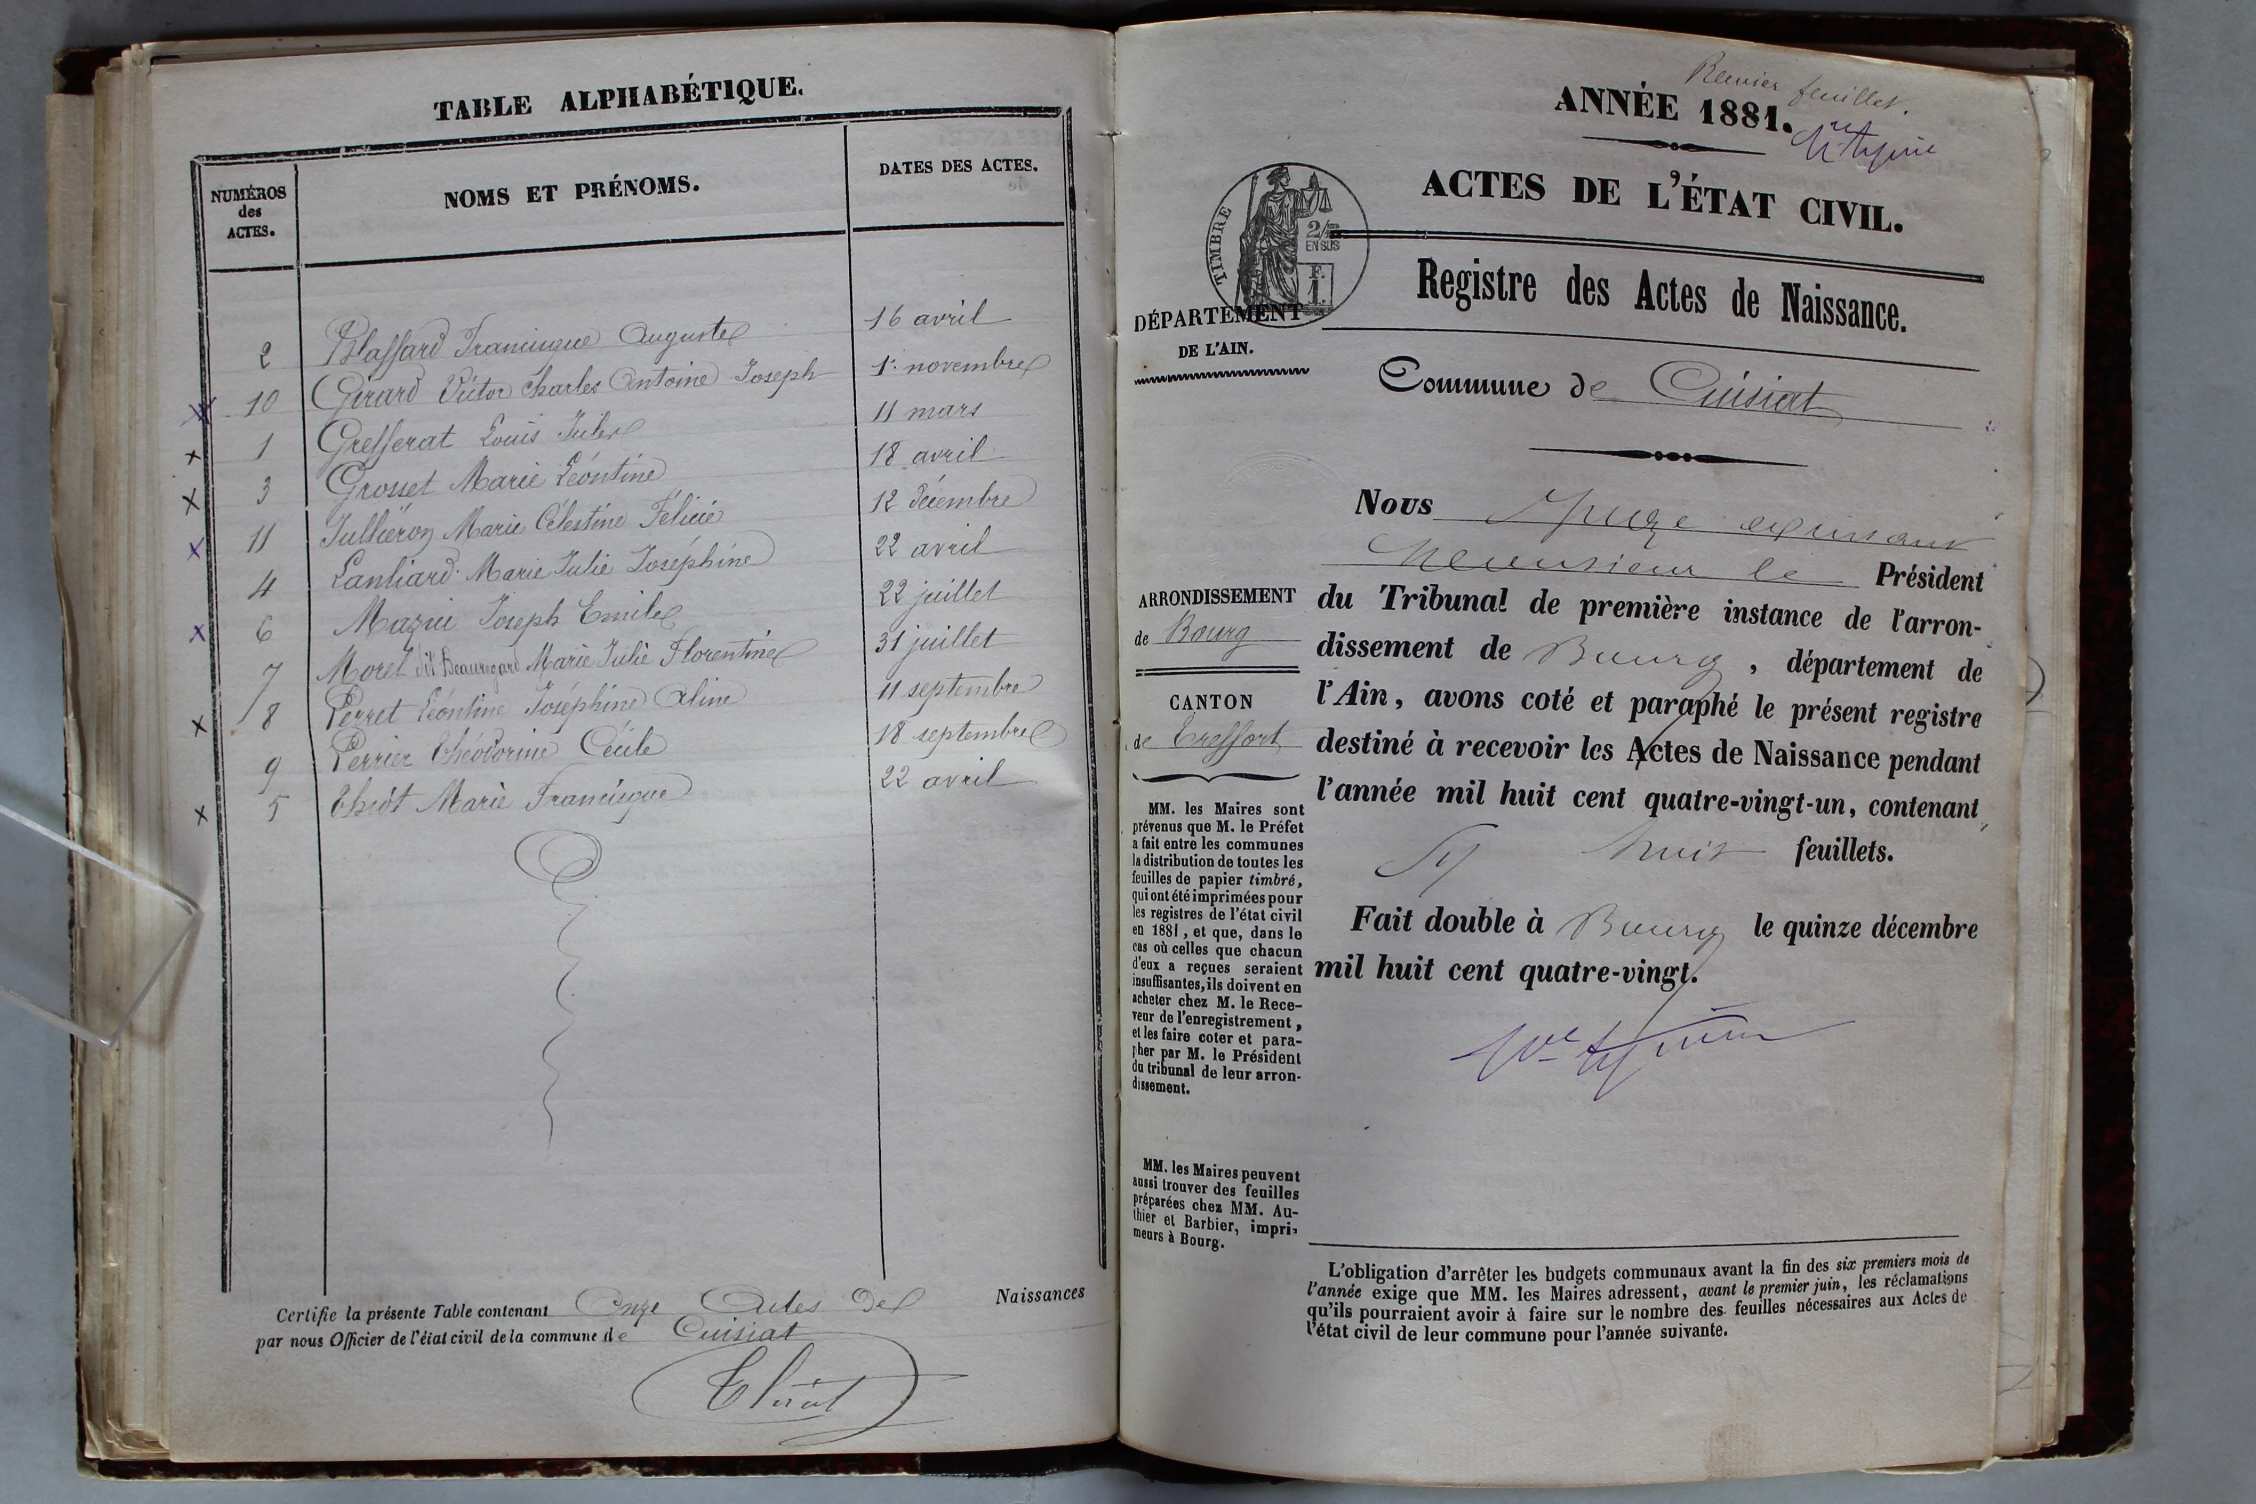 TABLE ALPHABÉTIQUE.
NUMÉROS des ACTES.
NOMS ET PRÉNOMS.
DATES DES ACTES.
2 Blassard Francisque Auguste 16 avril
10 Girard Victor Charles Antoine Joseph 1er novembre
1 Gresserat Louis Jules 11 mars
3 Grosset Marie Léontine 18 avril
11 Jullieron Marie Célestine Félicie 12 décembre
4 Lanliard Marie Julie Joséphine 22 avril
6 Mazui Joseph Emile 22 juillet
7 Morel dit Beauregard Marie Julie Florentine 31 juillet
8 Perret Léontine Joséphine Aline 11 septembre
9 Perrier Théodorine Cécile 18 septembre
5 Thiot Marie Francisque 22 avril
Certifie la présente Table contenant Onze Actes de Naissances
par nous Officier de l'état civil de la commune de Cuisiat
Thiot
Premier feuillet.
ANNÉE 1881.
ACTES DE L'ÉTAT CIVIL.
TIMBRE
2/10 EN SUS
F. 1.
Registre des Actes de Naissance.
DÉPARTEMENT
DE L'AIN.
Commune de Cuisiat
Nous Juge
Monsieur le Président
du Tribunal de première instance de l'arron-
dissement de Bourg, département de
l'Ain, avons coté et paraphé le présent registre
destiné à recevoir les Actes de Naissance pendant
l'année mil huit cent quatre-vingt-un, contenant
huit feuillets.
Fait double à Bourg le quinze décembre
mil huit cent quatre-vingt.
ARRONDISSEMENT
de Bourg
CANTON
de Treffort
MM. les Maires sont
prévenus que M. le Préfet
a fait entre les communes
la distribution de toutes les
feuilles de papier timbré,
qui ont été imprimées pour
les registres de l'état civil
en 1881, et que, dans le
cas où celles que chacun
d'eux a reçues seraient
insuffisantes, ils doivent en
acheter chez M. le Rece-
veur de l'enregistrement,
et les faire coter et para-
pher par M. le Président
du tribunal de leur arron-
dissement.
MM. les Maires peuvent
aussi trouver des feuilles
préparées chez MM. Au-
thier et Barbier, impri-
meurs à Bourg.
L'obligation d'arrêter les budgets communaux avant la fin des six premiers mois de
l'année exige que MM. les Maires adressent, avant le premier juin, les réclamations
qu'ils pourraient avoir à faire sur le nombre des feuilles nécessaires aux Actes de
l'état civil de leur commune pour l'année suivante.